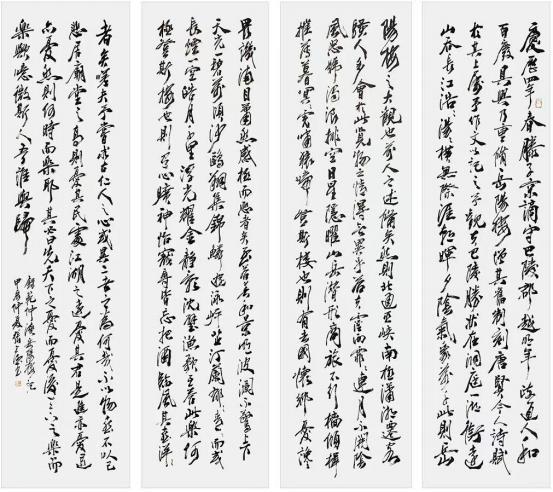 慶曆四年春滕子京謫守巴陵郡越明年政通人和
百廢具興乃重修岳陽樓增其舊制刻唐賢今人詩賦
於其上屬予作文以記之予觀夫巴陵勝狀在洞庭一湖銜遠
山吞長江浩浩湯湯橫無際涯朝暉夕陰氣象萬千此則岳
陽樓之大觀也前人之述備矣然則北通巫峽南極瀟湘遷客
騷人多會於此覽物之情得無異乎若夫霪雨霏霏連月不開陰
風怒號濁浪排空日星隱曜山岳潛形商旅不行檣傾楫
摧薄暮冥冥虎嘯猿啼登斯樓也則有去國懷鄉憂讒
畏譏滿目蕭然感極而悲者矣至若春和景明波瀾不驚上下
天光一碧萬頃沙鷗翔集錦鱗游泳岸芷汀蘭郁郁青青而或
長煙一空皓月千里浮光耀金靜影沉璧漁歌互答此樂何
極登斯樓也則有心曠神怡寵辱皆忘把酒臨風其喜洋洋
者矣嗟夫予嘗求古仁人之心或異二者之為何哉不以物喜不以己
悲居廟堂之高則憂其民處江湖之遠則憂其君是進亦憂退
亦憂然則何時而樂耶其必曰先天下之憂而憂後天下之樂而
樂歟噫微斯人吾誰與歸
錄范仲淹岳陽樓記
仲夏